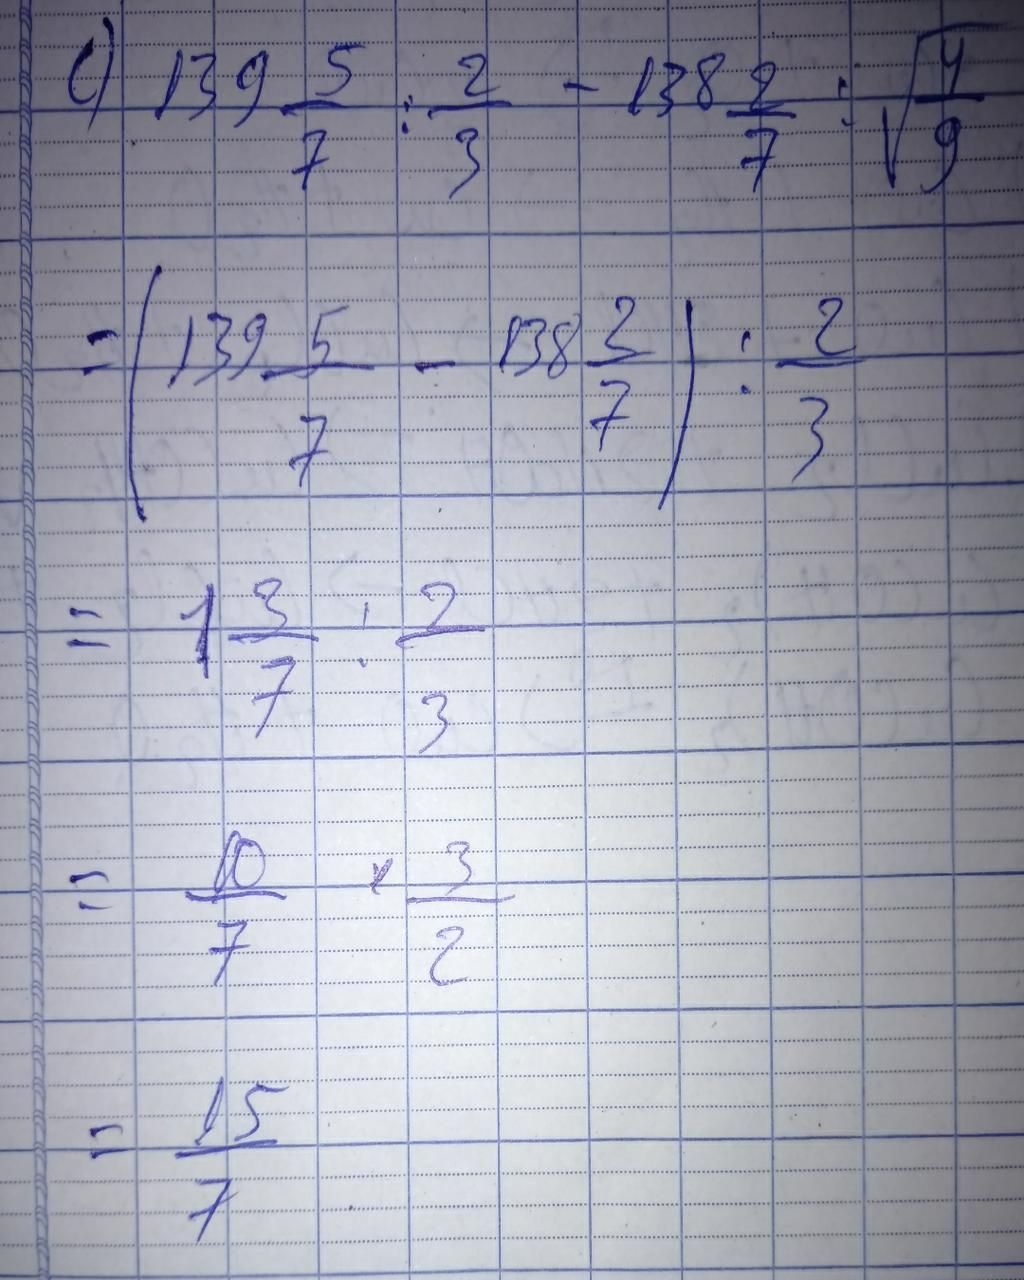 c) 139 5/7 : 2/3 - 138 2/7 : √(4/9)
= (139 5/7 - 138 2/7) : 2/3
= 1 3/7 : 2/3
= 10/7 × 3/2
= 15/7